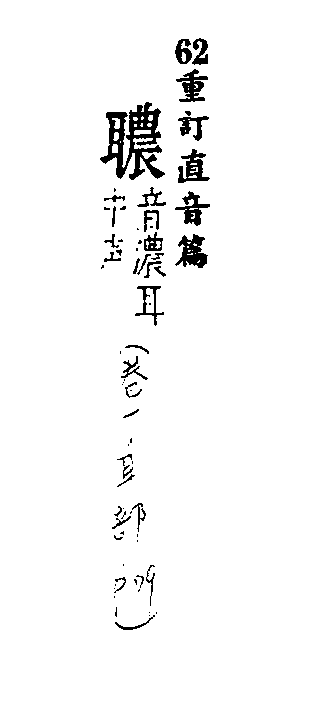 62重訂直音篇
聸音濃耳
中声
(卷一耳部